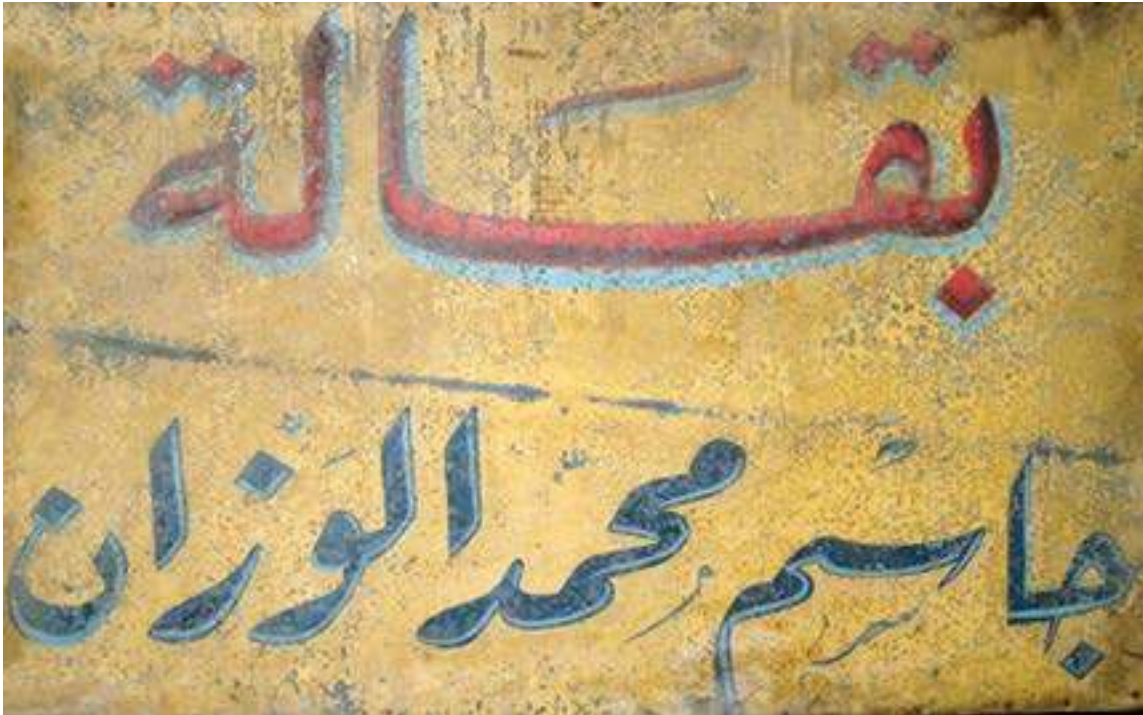 بقالة
جاسم محمد الوزان